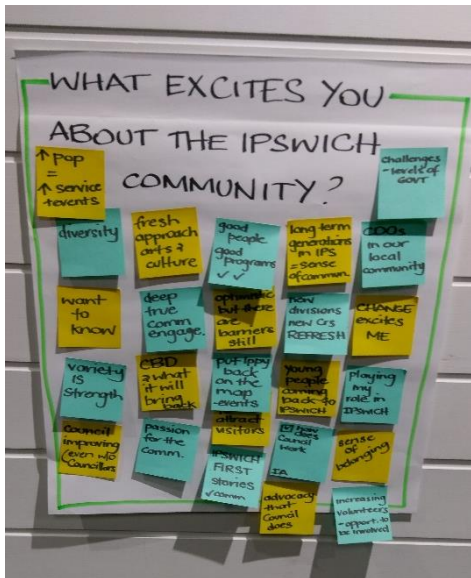 WHAT EXCITES YOU
ABOUT THE IPSWICH
COMMUNITY?
↑ pop
=
↑ service
+events
challenges
- levels of
GOVT
diversity
fresh
approach
arts &
culture
good
people
good
programs
✓ ✓
long-term
generations
in IPS
= sense
of commun.
in our
local
community
want
to
know
deep
true
comm
engage.
optimistic
but there
are
barriers
still
new
divisions
new Crs
REFRESH
CHANGE
excites
ME
variety
IS
strength
CBD
& what
it will
bring
back
put Ippy
back
on the
map
-events
young
people
coming
back to
IPSWICH
playing
my
role in
IPSWICH
Council
improving
(even w/o
Councillors)
passion
for the
comm.
attract
visitors
how
does
Council
work
IA
sense
of
belonging
IPSWICH
FIRST
stories
✓comm
advocacy
that
Council
does
increasing
volunteers
- opport. to
be involved